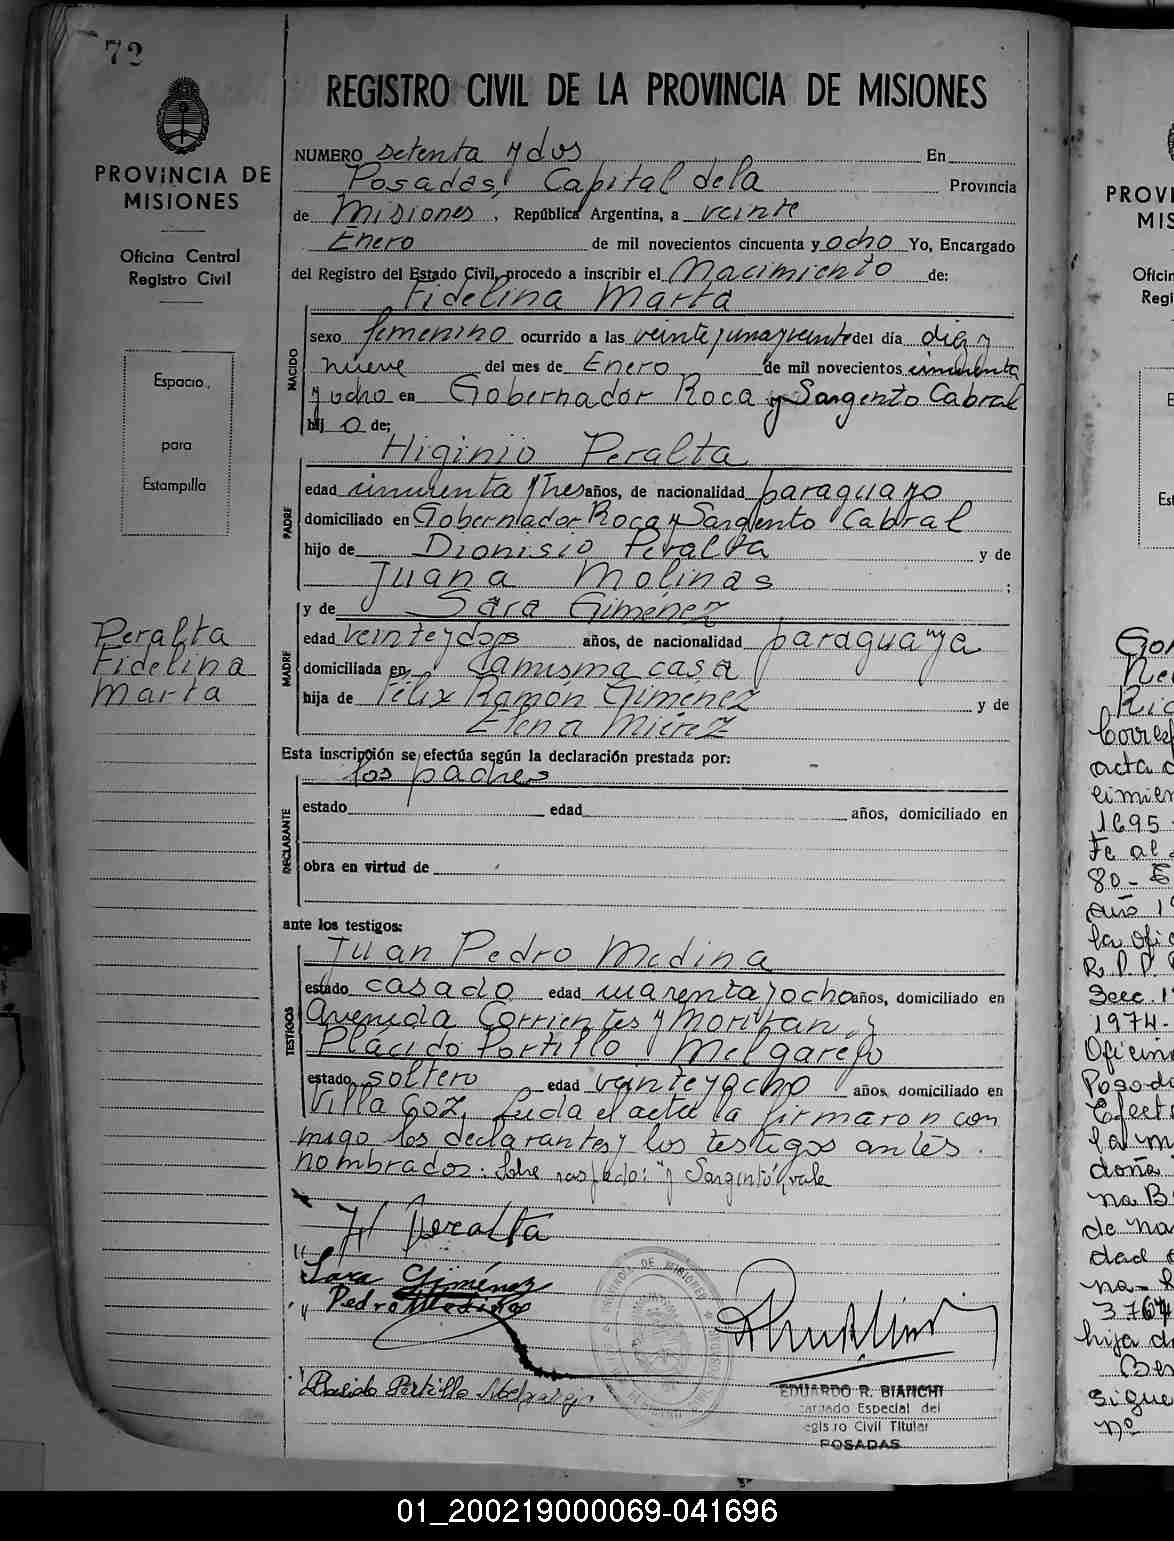 72
PROVINCIA DE
MISIONES
Oficina Central
Registro Civil
Espacio
para
Estampilla
Peralta
Fidelina
Marta
REGISTRO CIVIL DE LA PROVINCIA DE MISIONES
NUMERO setenta y dos En
Posadas, Capital dela Provincia
de Misiones, República Argentina, a veinte
Enero de mil novecientos cincuenta y ocho Yo, Encargado
del Registro del Estado Civil, procedo a inscribir el Nacimiento de:
Fidelina Marta
NACIDO
sexo femenino ocurrido a las veinte y una y veinte del día diez y
nueve del mes de Enero de mil novecientos cincuenta
y ocho en Gobernador Roca y Sargento Cabral
hij o de;
PADRE
Higinio Peralta
edad cincuenta y tres años, de nacionalidad paraguayo
domiciliado en Gobernador Roca y Sargento Cabral
hijo de Dionisio Peralta y de
Juana Molinas ;
MADRE
y de Sara Giménez
edad veinte y dos años, de nacionalidad paraguaya
domiciliada en lamisma casa
hija de Félix Ramón Gimenez y de
Elena
Esta inscripción se efectúa según la declaración prestada por:
los padres
DECLARANTE
estado edad años, domiciliado en
obra en virtud de
ante los testigos:
TESTIGOS
Juan Pedro Medina
estado casado edad cuarenta y ocho años, domiciliado en
Avenida Corrientes y y
Placido Portillo Melgarejo
estado soltero edad veinte y ocho años, domiciliado en
Villa Coz, Leida el acta la firmaron con
migo los declarantes y los testigos antes
nombrados: Sobre raspado: "y Sargento" vale
H Peralta
Sara Giménez
Pedro Medina
Placido Portillo Melgarejo
EDUARDO R. BIANCHI
Especial del
Registro Civil Titular
POSADAS
PROVI
MIS
Oficin
Regi
E
Est
Gon
Ne
Ric
Corres
acta d
cimien
1695
Fe al
80-
año 19
la Ofic
R.P.P.
Secc. 1
1974-
Oficin
Posada
Efect
la m
doña
na B
de na
dad
na-
3.764
hija d
Be
Sigue
nº
01_200219000069-041696